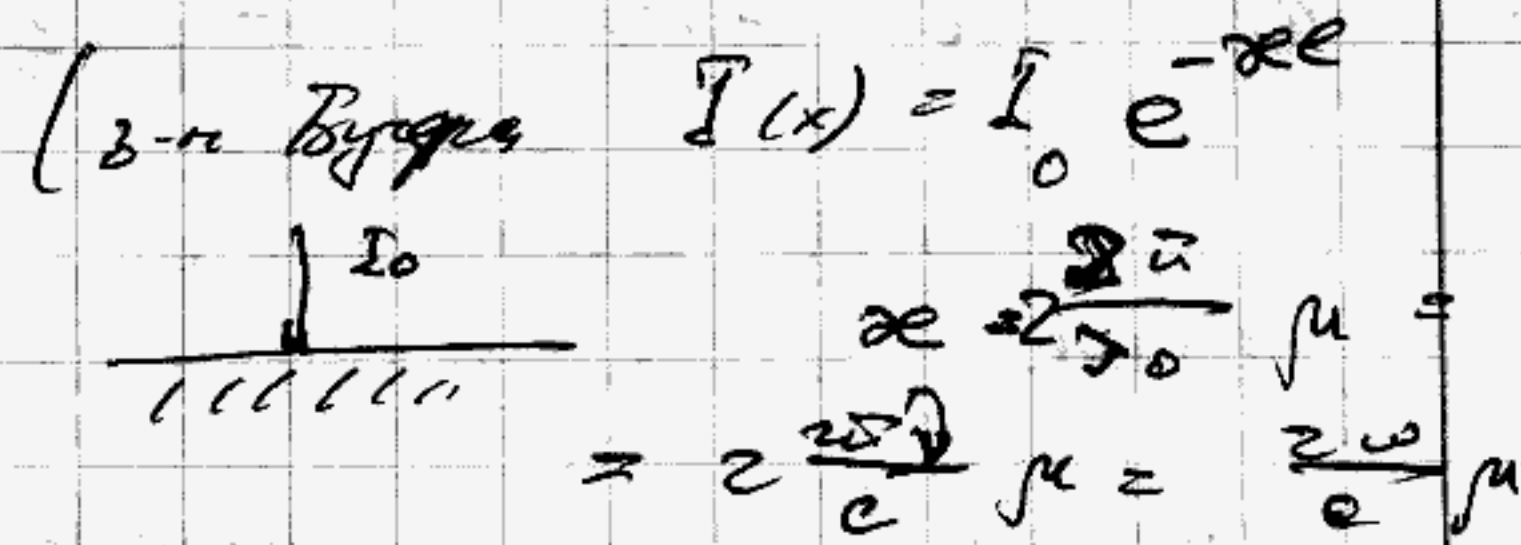 (з-н Бугера I(x) = I₀ e^{-æl}
I₀
æ = 2 \frac{2π}{λ₀} μ =
= 2 \frac{2πν}{c} μ = \frac{2ω}{c} μ